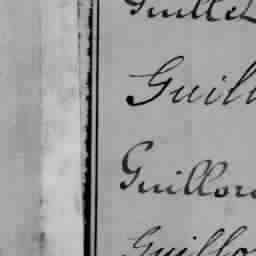 Guillet
Guill
Guillou
Guillo